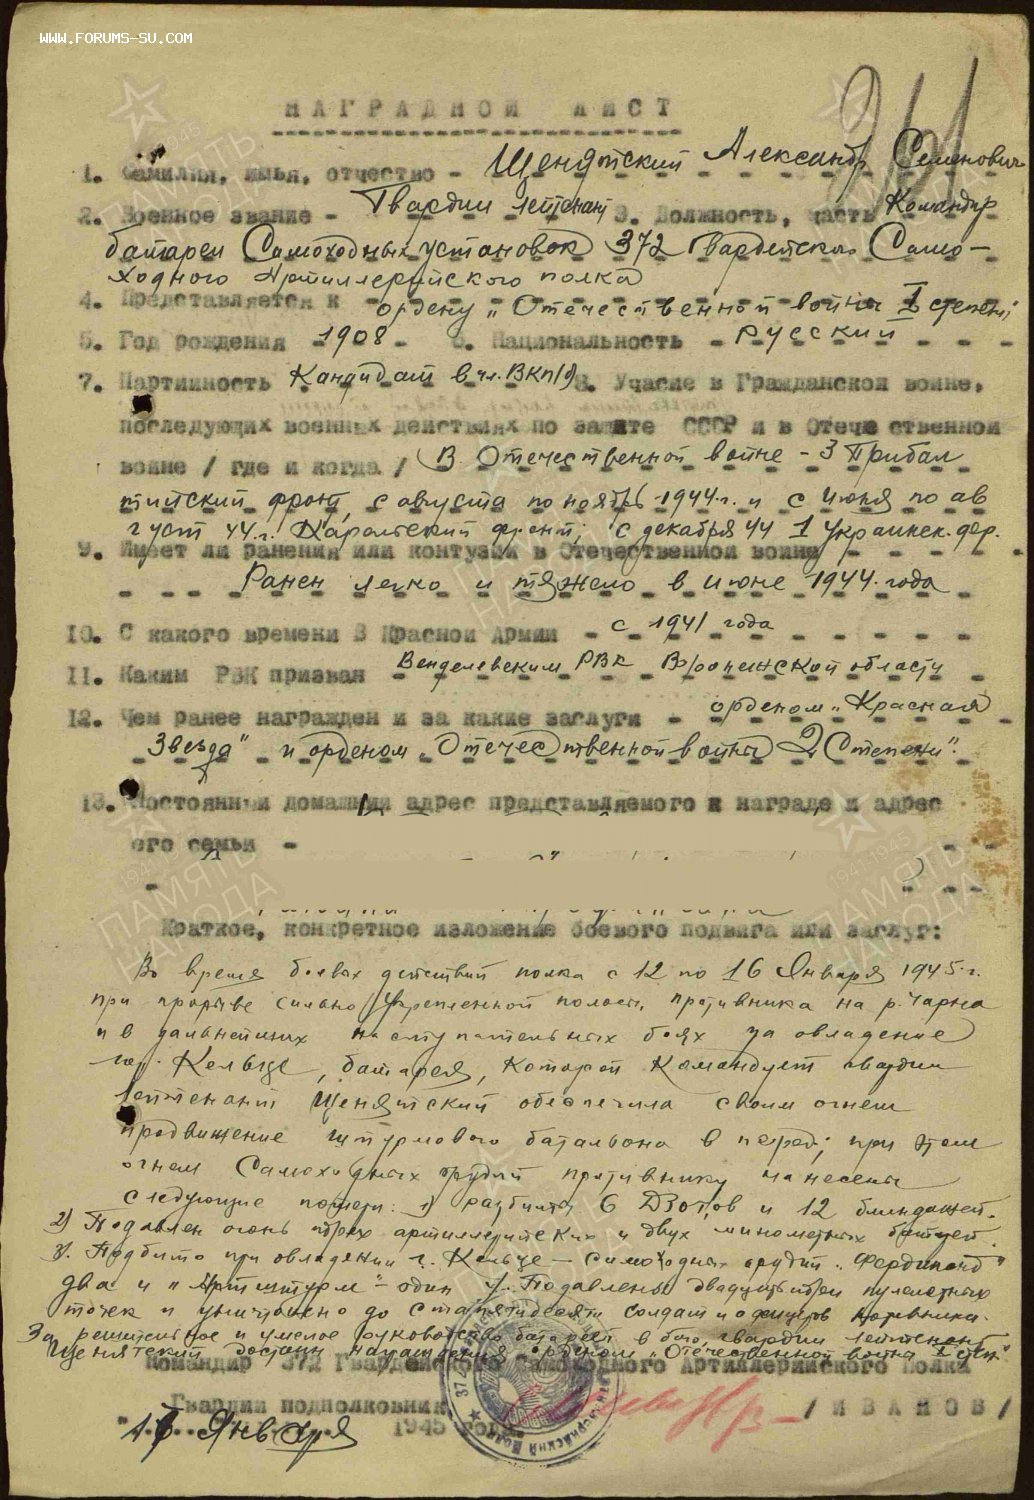 WWW.FORUMS-SU.COM
НАГРАДНОЙ ЛИСТ
1. Фамилия, имья, отчество - Щенятский Александр Семенович
2. Военное звание - Гвардии лейтенант 3. Должность, часть Командир
батареи Самоходных установок 372 Гвардейского Само-
ходного Артиллерийского полка
4. Представляется к ордену „Отечественной войны I степени
5. Год рождения - 1908 - 6. Национальность - русский
7. Партийность Кандидат в чл. ВКП(б) 8. Учасие в Гражданской воине,
последующих военных действиях по защите СССР и в Отечественной
воине / где и когда / В Отечественной войне - 3 Прибал
тийский фронт, с августа по ноябрь 1944 г. и с июня по ав
густ 44 г. Карельский фронт, с декабря 44 1 Украинск. фр.
9. Имеет ли ранения или контузии в Отечественной воине
Ранен легко и тяжело в июне 1944 года
10. С какого времени В Красной Армии - с 1941 года
11. Каким РВК призван Вейделевским РВК Воронежской области
12. Чем ранее награжден и за какие заслуги - орденом „Красная
Звезда" и орденом „Отечественной войны 2 Степени".
13. Постоянный домашний адрес представляемого к награде и адрес
его семьи -
Краткое, конкретное изложение боевого подвига или заслуг:
Во время боевых действий полка с 12 по 16 Января 1945 г.
при прорыве сильно укрепленной полосы противника на р. Чарна
и в дальнейших наступательных боях за овладение
гор. Кельце, батарея, которой командует гвардии
лейтенант Щенятский обеспечила своим огнем
продвижение штурмового батальона в перед; при этом
огнем Самоходных орудий противнику нанесены
следующие потери: 1) разбито 6 Дзотов и 12 блиндажей.
2) Подавлен огонь трех артиллерийских и двух минометных батарей.
3. Подбито при овладении г. Кельце - самоходных орудий „Фердинанд"
два и „Артштурм" - один 4. Подавлены двадцать три пулеметных
точек и уничтожено до ста пятидесяти солдат и офицеров противника.
За решительное и умелое руководство батареей в бою, гвардии лейтенант
Щенятский достоин награждения орденом „Отечественной война I степ."
Командир 372 Гвардейского Самоходного Артиллерийского Полка
Гвардии подполковник / ИВАНОВ /
Января 1945 года